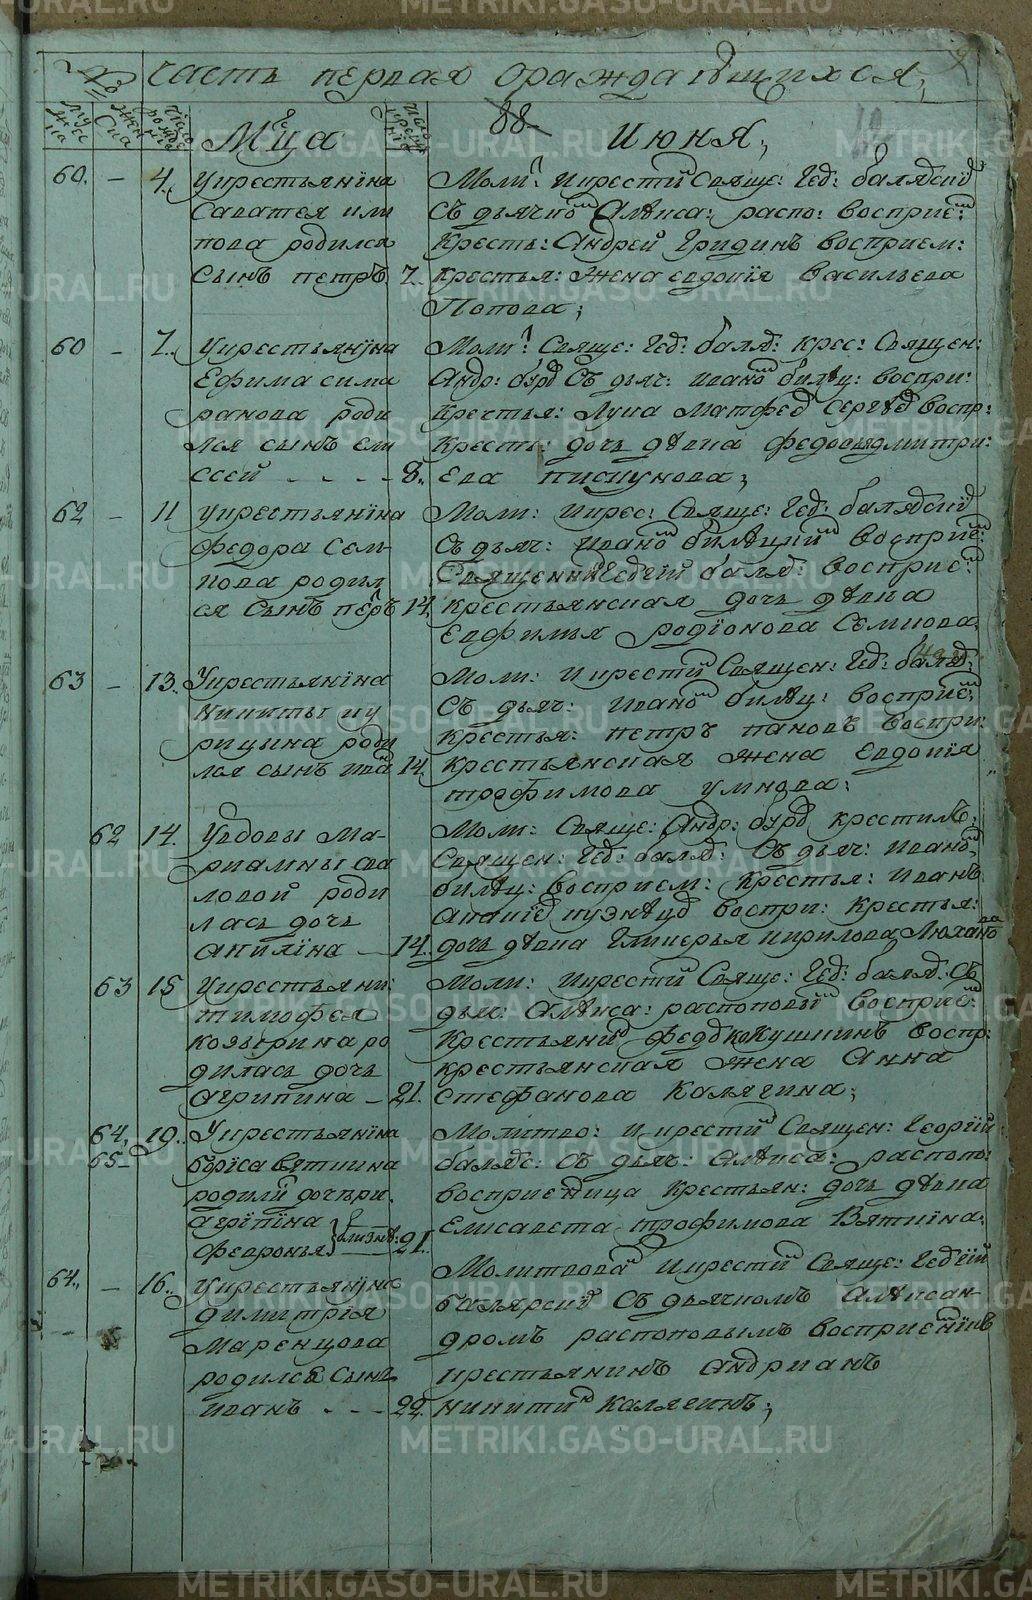 Часть первая ораждающихся,
№
муж
ска
жен
ска
число
рожде
нія
число
креще
нія
Мца
88.
Июня,
60. – 4. Укрестьянїна
Саватея или
пова родился
сынъ петръ. 7.
Моли: Икрести Свяще: Геѡ: балядскі
Съ дьячко Алѣкса: распо: восприе:
Кресть: Андрей Гридинъ восприем:
крестья: жена евдокїя Васильева
Попова;
60 – 7. Укрестьянїна
Ефима сима
ранова роди
лся сынъ ели
ссей - - - - 8.
Моли: Свяще: Геѡ: баляд: крес: Священ:
Андр: бурд Съ дьяч: ивано билѣц: воспри:
крестья: Лука Матфее Сергее воспр:
кресть: дочь девка федосья дмитри:
Ева пискунова;
62 – 11 укрестьянїна
федора Сем-
кова родил
ся сынъ петръ 14.
Моли: икрес: Свяще: Геѡ: балядскїй
Съ дьяч: ивано билѣцкий восприе:
Священникъ Геѡгїй баляд: восприе:
крестьянская дочь девка
Евфимья родїонова Семкова
63 – 13. Укрестьянїна
Никиты ку
рицына роди
лся сынъ ива 14.
Моли: Икрести Священ: Геѡ: баляд:
Съ дьяч: ивано билѣц: восприе:
крестья: петръ пановъ воспри:
крестьянская жена Евдокїя
трофимова умнова;
62 14. Увдовы Ма-
риамны сва
ловой роди
лась дочь
акилїна – 14.
Моли: Свяще: Андр: бурд крестилъ:
Священ: Геѡ: баляд: Съ дьяч: ивано,
билѣц: восприем: крестья: иванъ
апание кузнѣцо воспри: крестья:
дочь девка Гликерья кирилова Люхано
ва
63 15 Укрестьяни:
тимофея
козырина ро
дилась дочь
агрипина – 21.
Моли: Икрести Свяще: Геѡ: баляд: Съ
дья: Алѣкса: распоповы восприе:
Крестьяни федо кокушкинъ воспр:
крестьянская жена Анна
стефанова Калягина;
64, 19. Укрестьянїна
65 борїса вяткина
родили дочери.
агріпїна
февронья близне: 21.
Молитво: икрести Священ: Георгїй
балядс: Съ дьяч: Алѣкса: распопо:
восприемница крестьян: дочь девка
Елисавета трофимова Вяткина.
64., – 16. укрестьянїна
димитрїя
маренцова
родился сынъ
иванъ - - - 22.
Молитвова икрести Свяще: Геѡгїй
балядски Съ дьячкомъ алѣксан-
дромъ распоповымъ восприемникъ
крестьянинъ андрианъ
никити калягинъ;